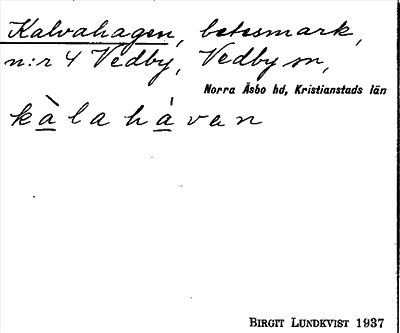 Kalvahagen, betesmark,
n:r 4 Vedby, Vedby sn,
Norra Åsbo hd, Kristianstads län
kàlahávan
BIRGIT LUNDKVIST 1937